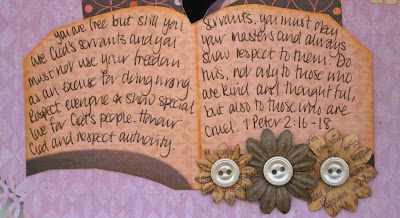 you are free but still you
are God's servants and you
must not use your freedom
as an excuse for doing wrong.
Respect everyone & show special
love for God's people. Honour
God and respect authority.
Servants, you must obey
your masters and always
show respect to them. Do
this, not only to those who
are kind and thoughtful,
but also to those who are
cruel. 1 Peter 2:16-18